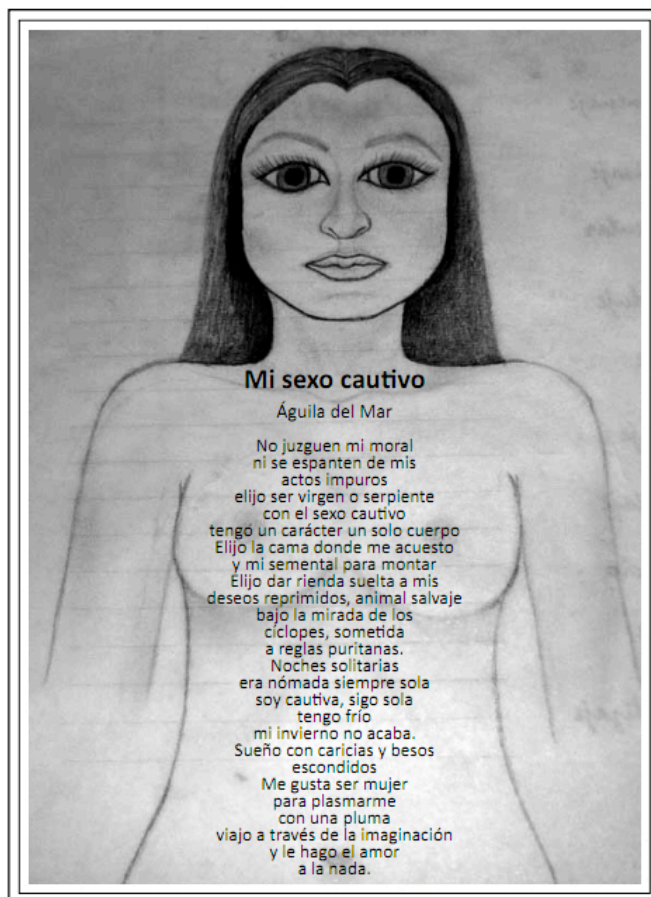 Mi sexo cautivo
Águila del Mar
No juzguen mi moral
ni se espanten de mis
actos impuros
elijo ser virgen o serpiente
con el sexo cautivo
tengo un carácter un solo cuerpo
Elijo la cama donde me acuesto
y mi semental para montar
Elijo dar rienda suelta a mis
deseos reprimidos, animal salvaje
bajo la mirada de los
cíclopes, sometida
a reglas puritanas.
Noches solitarias
era nómada siempre sola
soy cautiva, sigo sola
tengo frío
mi invierno no acaba.
Sueño con caricias y besos
escondidos
Me gusta ser mujer
para plasmarme
con una pluma
viajo a través de la imaginación
y le hago el amor
a la nada.